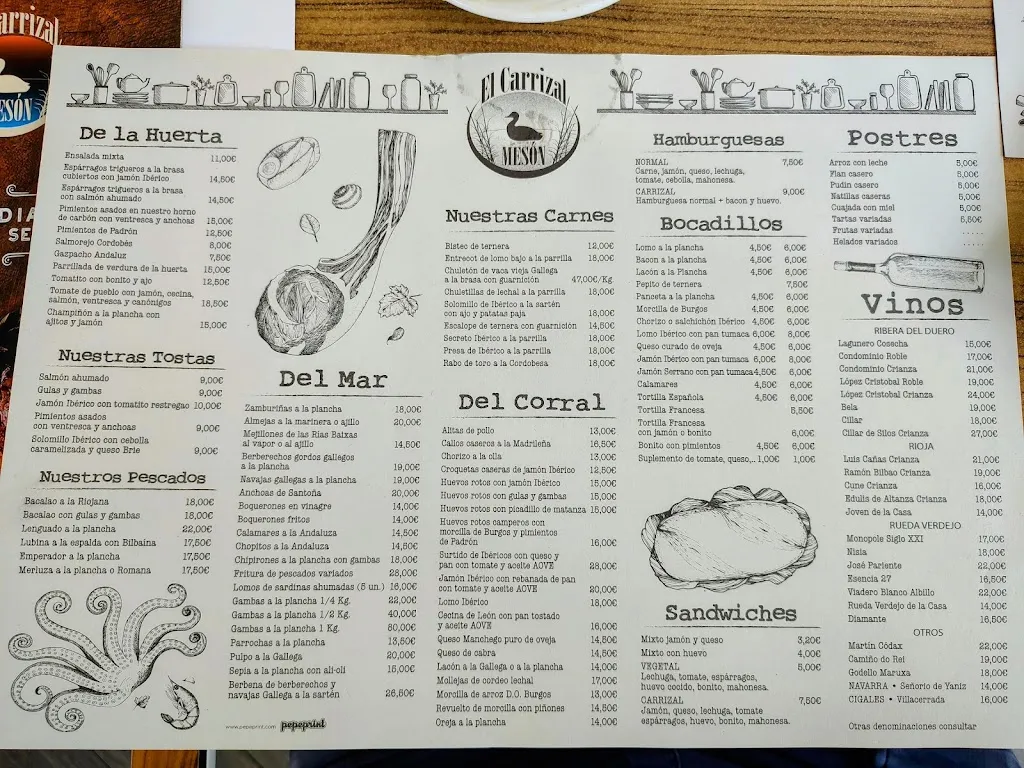 Carrizal
MESÓN
DIA
SE
El Carrizal
MESÓN
De la Huerta
Ensalada mixta 11,00€
Espárragos trigueros a la brasa
cubiertos con jamón Ibérico 14,50€
Espárragos trigueros a la brasa
con salmón ahumado 14,50€
Pimientos asados en nuestro horno
de carbón con ventresca y anchoas 15,00€
Pimientos de Padrón 12,50€
Salmorejo Cordobés 8,00€
Gazpacho Andaluz 7,50€
Parrillada de verdura de la huerta 15,00€
Tomatito con bonito y ajo 12,50€
Tomate de pueblo con jamón, cecina,
salmón, ventresca y canónigos 18,50€
Champiñón a la plancha con
ajitos y jamón 15,00€
Nuestras Tostas
Salmón ahumado 9,00€
Gulas y gambas 9,00€
Jamón Ibérico con tomatito restregao 10,00€
Pimientos asados
con ventresca y anchoas 9,00€
Solomillo Ibérico con cebolla
caramelizada y queso Brie 9,00€
Nuestros Pescados
Bacalao a la Riojana 18,00€
Bacalao con gulas y gambas 18,00€
Lenguado a la plancha 22,00€
Lubina a la espalda con Bilbaina 17,50€
Emperador a la plancha 17,50€
Merluza a la plancha o Romana 17,50€
Del Mar
Zamburiñas a la plancha 18,00€
Almejas a la marinera o ajillo 20,00€
Mejillones de las Rías Baixas
al vapor o al ajillo 14,50€
Berberechos gordos gallegos
a la plancha 19,00€
Navajas gallegas a la plancha 19,00€
Anchoas de Santoña 20,00€
Boquerones en vinagre 14,00€
Boquerones fritos 14,00€
Calamares a la Andaluza 14,50€
Chopitos a la Andaluza 14,50€
Chipirones a la plancha con gambas 18,00€
Fritura de pescados variados 28,00€
Lomos de sardinas ahumadas (5 un.) 16,00€
Gambas a la plancha 1/4 Kg. 22,00€
Gambas a la plancha 1/2 Kg. 40,00€
Gambas a la plancha 1 Kg. 80,00€
Parrochas a la plancha 13,50€
Pulpo a la Gallega 20,00€
Sepia a la plancha con ali-oli 15,00€
Berbena de berberechos y
navajas Gallega a la sartén 26,50€
www.pepeprint.com pepeprint
Nuestras Carnes
Bistec de ternera 12,00€
Entrecot de lomo bajo a la parrilla 18,00€
Chuletón de vaca vieja Gallega
a la brasa con guarnición 47,00€/Kg.
Chuletillas de lechal a la parrilla 18,00€
Solomillo de Ibérico a la sartén
con ajo y patatas paja 18,00€
Escalope de ternera con guarnición 14,50€
Secreto Ibérico a la parrilla 18,00€
Presa de Ibérico a la parrilla 18,00€
Rabo de toro a la Cordobesa 18,00€
Del Corral
Alitas de pollo 13,00€
Callos caseros a la Madrileña 16,50€
Chorizo a la olla 13,00€
Croquetas caseras de jamón Ibérico 12,50€
Huevos rotos con jamón Ibérico 15,00€
Huevos rotos con gulas y gambas 15,00€
Huevos rotos con picadillo de matanza 15,00€
Huevos rotos camperos con
morcilla de Burgos y pimientos
de Padrón 16,00€
Surtido de Ibéricos con queso y
pan con tomate y aceite AOVE 28,00€
Jamón Ibérico con rebanada de pan
con tomate y aceite AOVE 20,00€
Lomo Ibérico 18,00€
Cecina de León con pan tostado
y aceite AOVE 16,00€
Queso Manchego puro de oveja 14,50€
Queso de cabra 14,50€
Lacón a la Gallega o a la plancha 14,00€
Mollejas de cordeo lechal 17,00€
Morcilla de arroz D.O. Burgos 13,00€
Revuelto de morcilla con piñones 14,50€
Oreja a la plancha 14,00€
Hamburguesas
NORMAL 7,50€
Carne, jamón, queso, lechuga,
tomate, cebolla, mahonesa.
CARRIZAL 9,00€
Hamburguesa normal + bacon y huevo.
Bocadillos
Lomo a la plancha 4,50€ 6,00€
Bacon a la plancha 4,50€ 6,00€
Lacón a la Plancha 4,50€ 6,00€
Pepito de ternera 7,50€
Panceta a la plancha 4,50€ 6,00€
Morcilla de Burgos 4,50€ 6,00€
Chorizo o salchichón Ibérico 4,50€ 6,00€
Lomo Ibérico con pan tumaca 6,00€ 8,00€
Queso curado de oveja 4,50€ 6,00€
Jamón Ibérico con pan tumaca 6,00€ 8,00€
Jamón Serrano con pan tumaca 4,50€ 6,00€
Calamares 4,50€ 6,00€
Tortilla Española 4,50€ 6,00€
Tortilla Francesa 5,50€
Tortilla Francesa
con jamón o bonito 6,00€
Bonito con pimientos 4,50€ 6,00€
Suplemento de tomate, queso,.. 1,00€ 1,00€
Sandwiches
Mixto jamón y queso 3,20€
Mixto con huevo 4,00€
VEGETAL 5,00€
Lechuga, tomate, espárragos,
huevo cocido, bonito, mahonesa.
CARRIZAL 7,50€
Jamón, queso, lechuga, tomate
espárragos, huevo, bonito, mahonesa.
Postres
Arroz con leche 5,00€
Flan casero 5,00€
Pudin casero 5,00€
Natillas caseras 5,00€
Cuajada con miel 5,00€
Tartas variadas 5,50€
Frutas variadas .....
Helados variados .....
Vinos
RIBERA DEL DUERO
Lagunero Cosecha 15,00€
Condominio Roble 17,00€
Condominio Crianza 21,00€
López Cristobal Roble 19,00€
López Cristobal Crianza 24,00€
Bela 19,00€
Cillar 18,00€
Cillar de Silos Crianza 27,00€
RIOJA
Luis Cañas Crianza 21,00€
Ramón Bilbao Crianza 19,00€
Cune Crianza 16,00€
Edulis de Altanza Crianza 18,00€
Joven de la Casa 14,00€
RUEDA VERDEJO
Monopole Siglo XXI 17,00€
Nisia 18,00€
José Pariente 22,00€
Esencia 27 16,50€
Viadero Blanco Albillo 22,00€
Rueda Verdejo de la Casa 14,00€
Diamante 16,50€
OTROS
Martín Códax 22,00€
Camiño do Rei 19,00€
Godello Maruxa 18,00€
NAVARRA • Señorio de Yaniz 14,00€
CIGALES • Villacerrada 16,00€
Otras denominaciones consultar